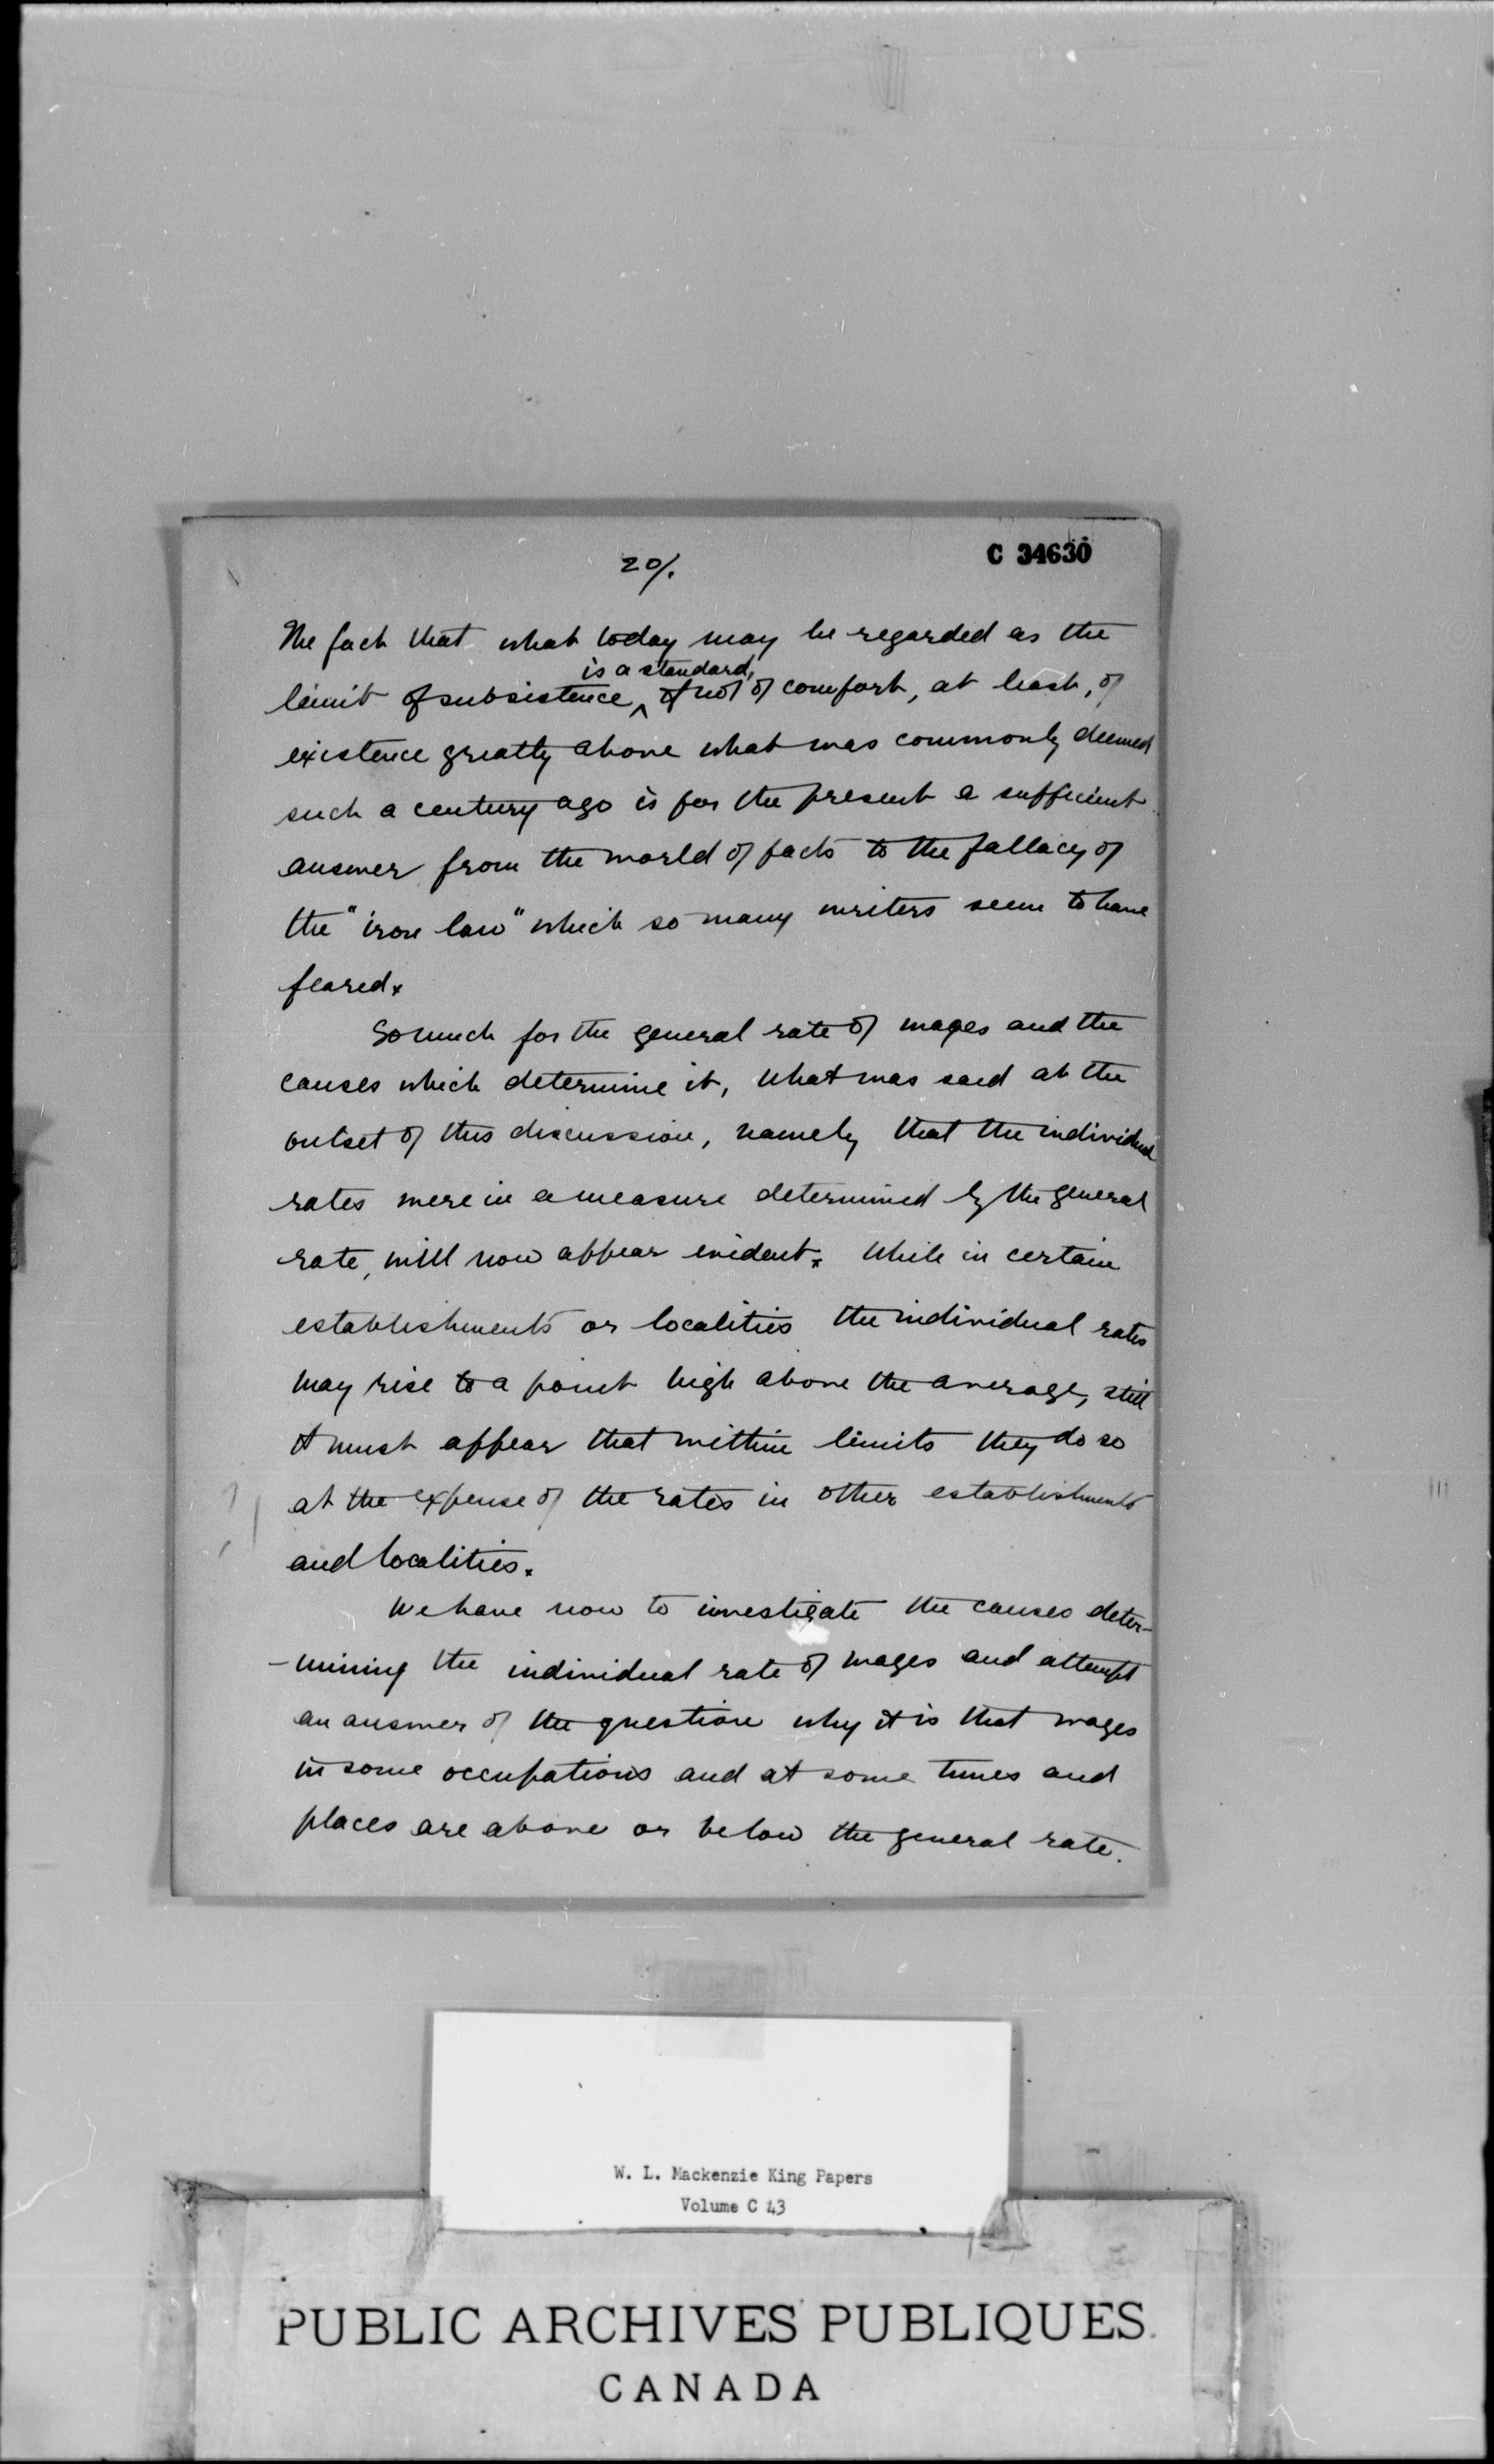 20/.
C 34630
The fact that what today may be regarded as the
is a standard,
limit of subsistence ^ if not of comfort, at least, of
existence greatly above what was commonly deemed
such a century ago is for the present a sufficient
answer from the world of facts to the fallacy of
the "iron law" which so many writers seem to have
feared.
So much for the general rate of wages and the
causes which determine it, What was said at the
outset of this discussion, namely that the individual
rates were in a measure determined by the general
rate, will now appear evident. While in certain
establishments or localities the individual rates
may rise to a point high above the average, still
it must appear that within limits they do so
at the expense of the rates in other establishments
and localities.
We have now to investigate the causes deter-
-mining the individual rate of wages and attempt
an answer of the question why it is that wages
in some occupations and at some times and
places are above or below the general rate.
W. L. Mackenzie King Papers
Volume C 43
PUBLIC ARCHIVES PUBLIQUES.
CANADA